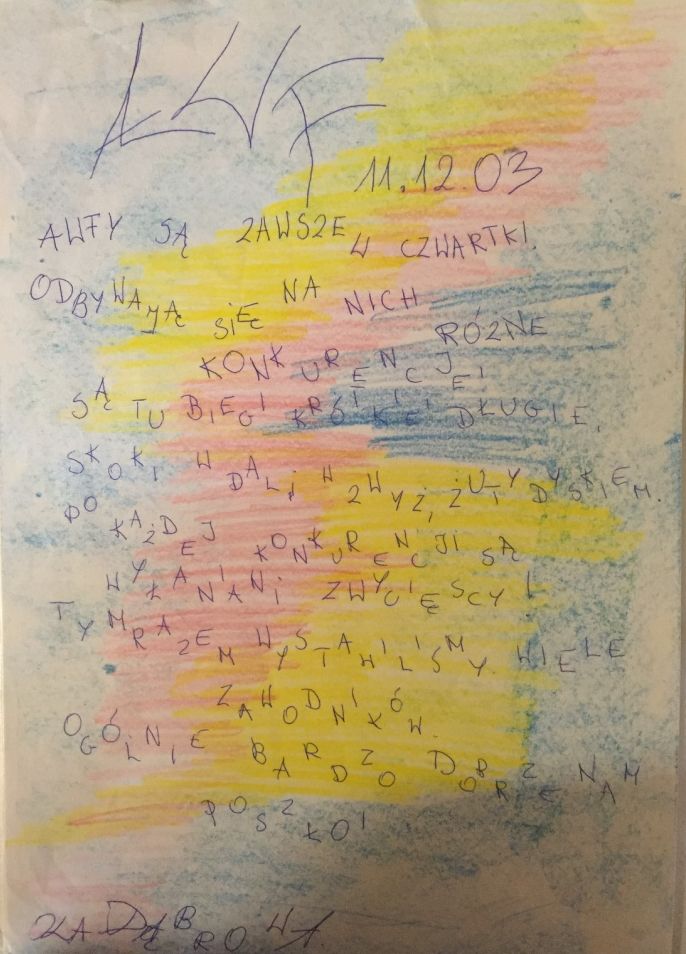 AWF
11.12.03
AWFY SĄ ZAWSZE W CZWARTKI.
ODBYWAJĄ SIĘ NA NICH RÓŻNE
KONKURENCJE!
SĄ TU BIEGI KRÓTKIE I DŁUGIE,
SKOKI W DAL I WZWYŻ, ŻUTY DYSKIEM.
PO KAŻDEJ KONKURENCJI SĄ
WYŁANIANI ZWYCIĘSCY!
TYM RAZEM WYSTAWILIŚMY WIELE
ZAWODNIKÓW.
OGÓLNIE BARDZO DOBRZE NAM
POSZŁO!
OLA DĄBROWA.